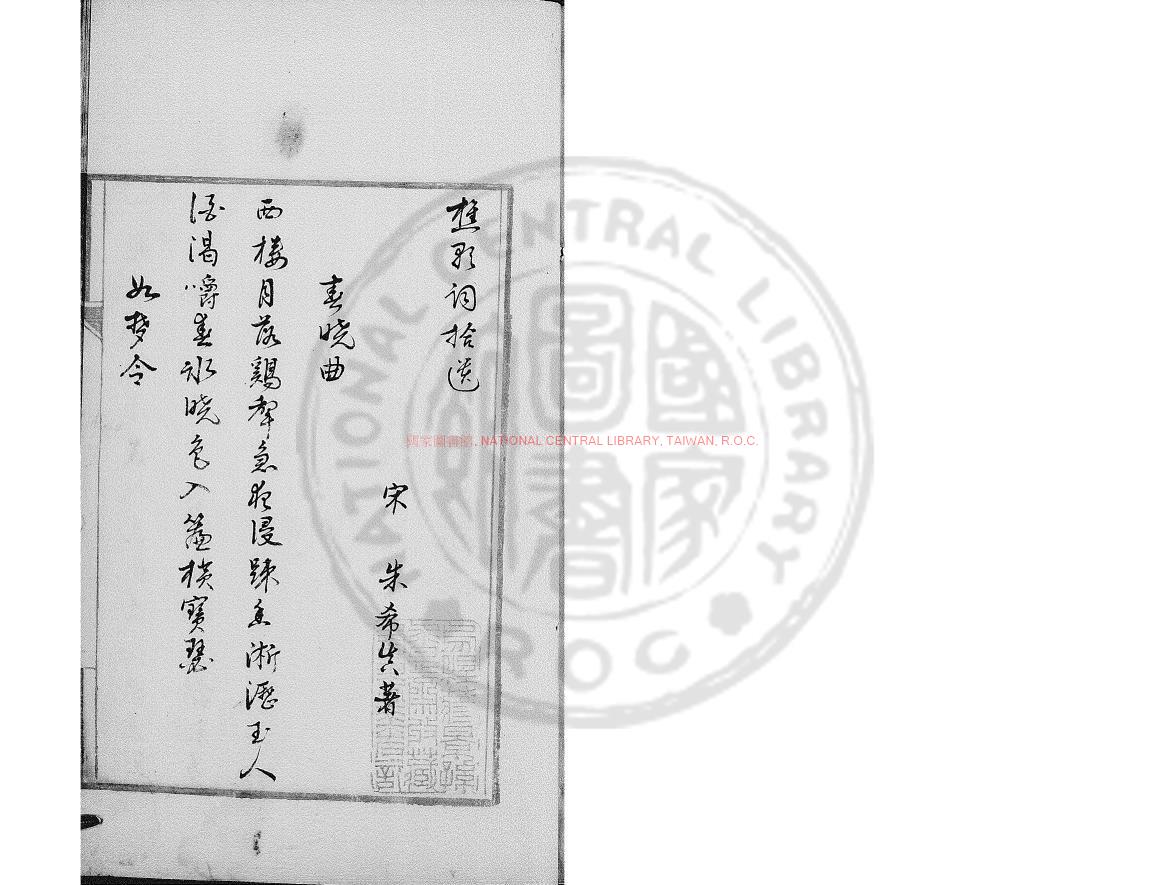 樵歌詞拾遺
宋 朱希真著
春曉曲
西樓月落鷄聲急夜浸踈香淅瀝玉人
酒渴嚼春冰曉色入簾橫寶瑟
如夢令
國家圖書館, NATIONAL CENTRAL LIBRARY, TAIWAN, R.O.C.
NATIONAL CENTRAL LIBRARY
國家圖書
ROC